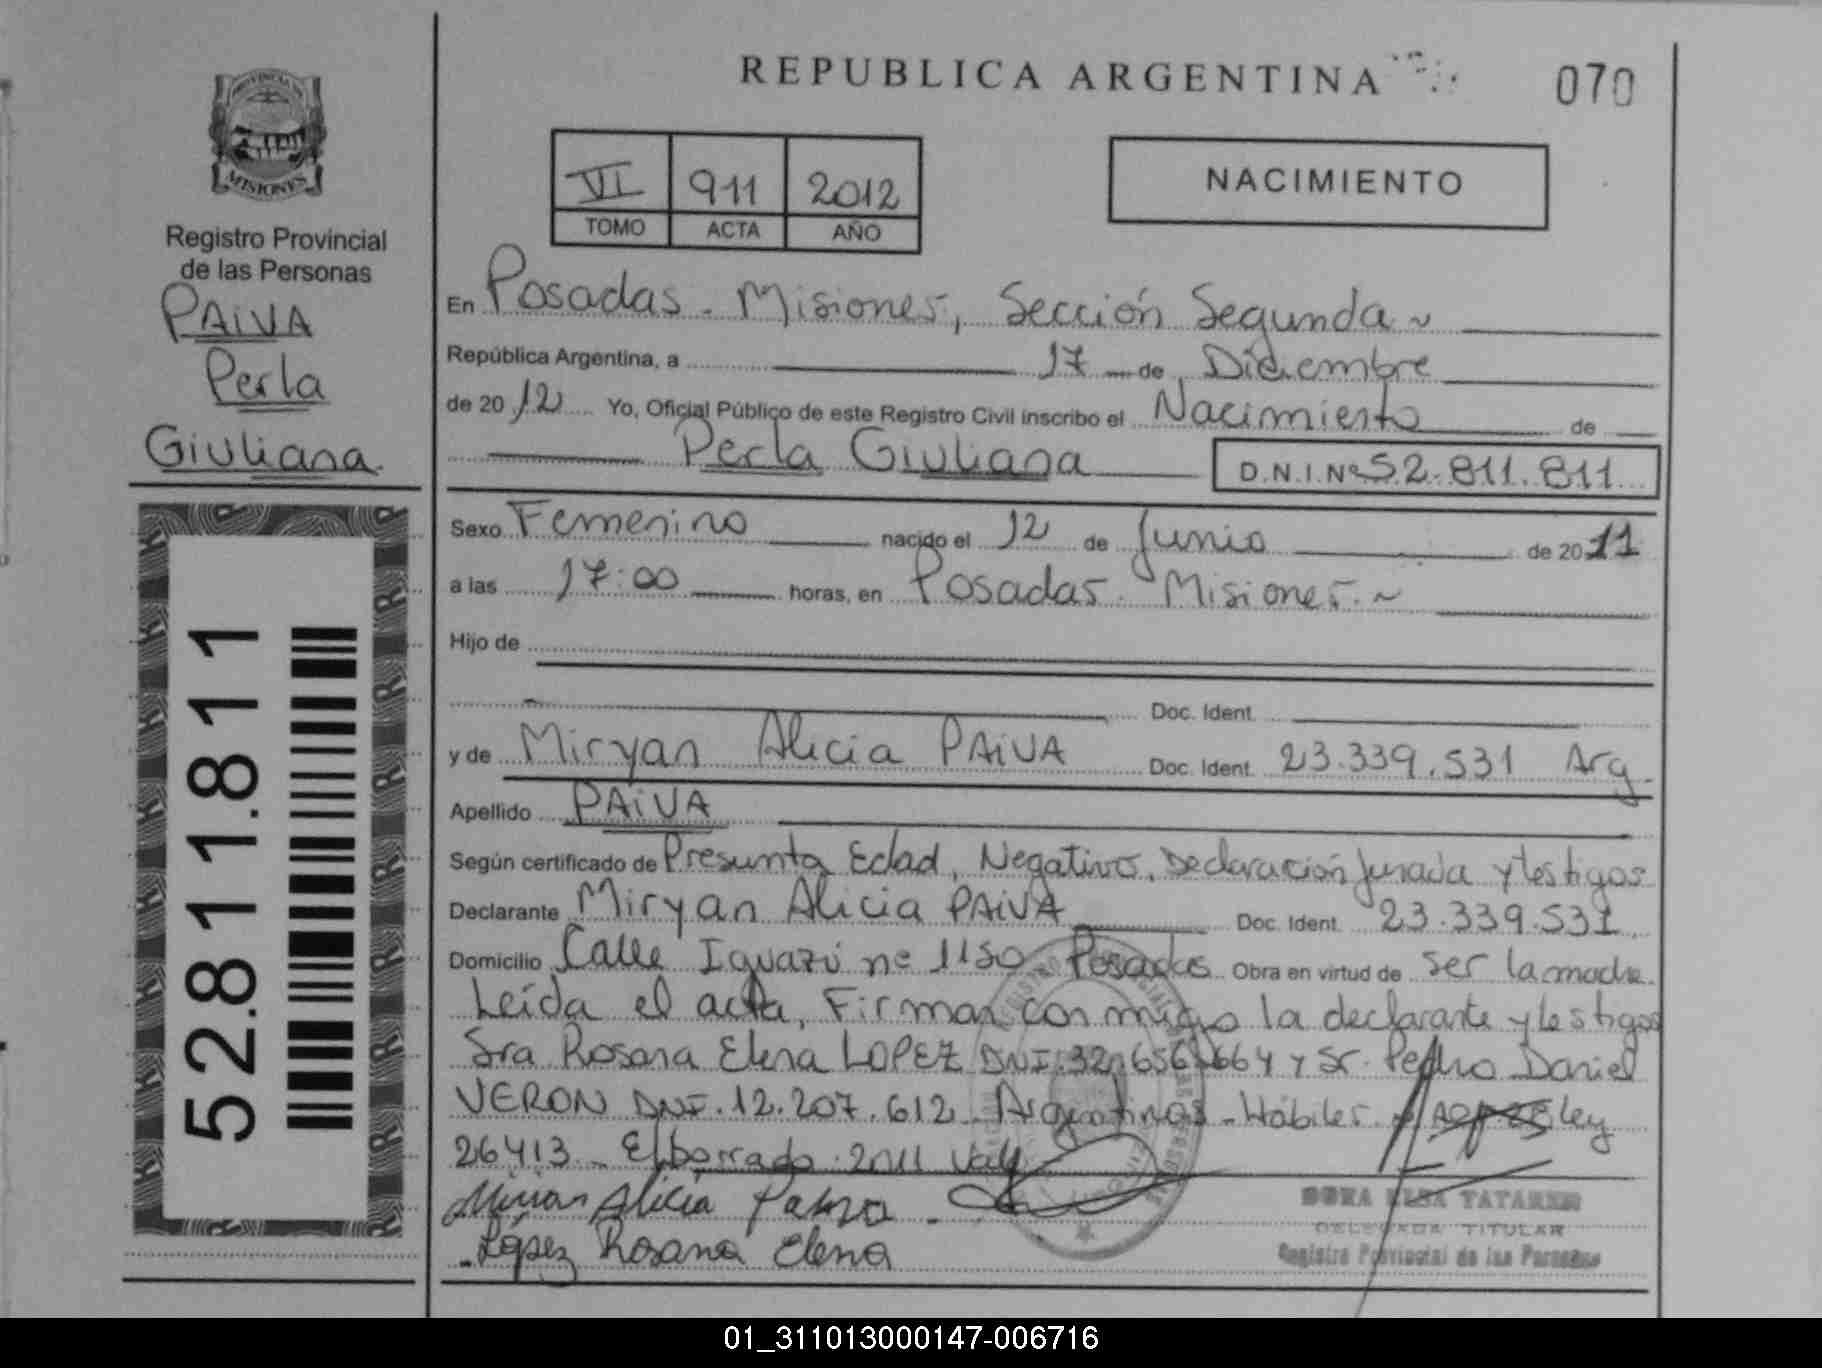 REPUBLICA ARGENTINA
070
PROVINCIA DE
MISIONES
Registro Provincial
de las Personas
PAIVA
Perla
Giuliana
52.811.811
VI 911 2012
TOMO ACTA AÑO
NACIMIENTO
En Posadas - Misiones, Sección Segunda ~
República Argentina, a 17 de Diciembre
de 2012 Yo, Oficial Público de este Registro Civil inscribo el Nacimiento de
Perla Giuliana D.N.I. Nº 52.811.811
Sexo Femenino nacido el 12 de Junio de 2011
a las 17:00 horas, en Posadas. Misiones. ~
Hijo de
Doc. Ident.
y de Miryan Alicia PAIVA Doc. Ident. 23.339.531 Arg.
Apellido PAIVA
Según certificado de Presunta Edad, Negativo, Declaración Jurada y testigos
Declarante Miryan Alicia PAIVA Doc. Ident. 23.339.531
Domicilio Calle Iguazú nº 1150 Posadas Obra en virtud de ser la madre.
Leída el acta, Firman conmigo la declarante y testigos
Sra Rosana Elena LOPEZ DNI. 32.656.664 y Sr. Pedro Daniel
VERON DNI. 12.207.612 Argentinos - Hábiles. Ley
26413 - E/borrado. 2011 Vale
Mirian Alicia Paiva
López Rosana Elena
TATAREN
DELEGADA TITULAR
Registro Provincial de las Personas
01_311013000147-006716